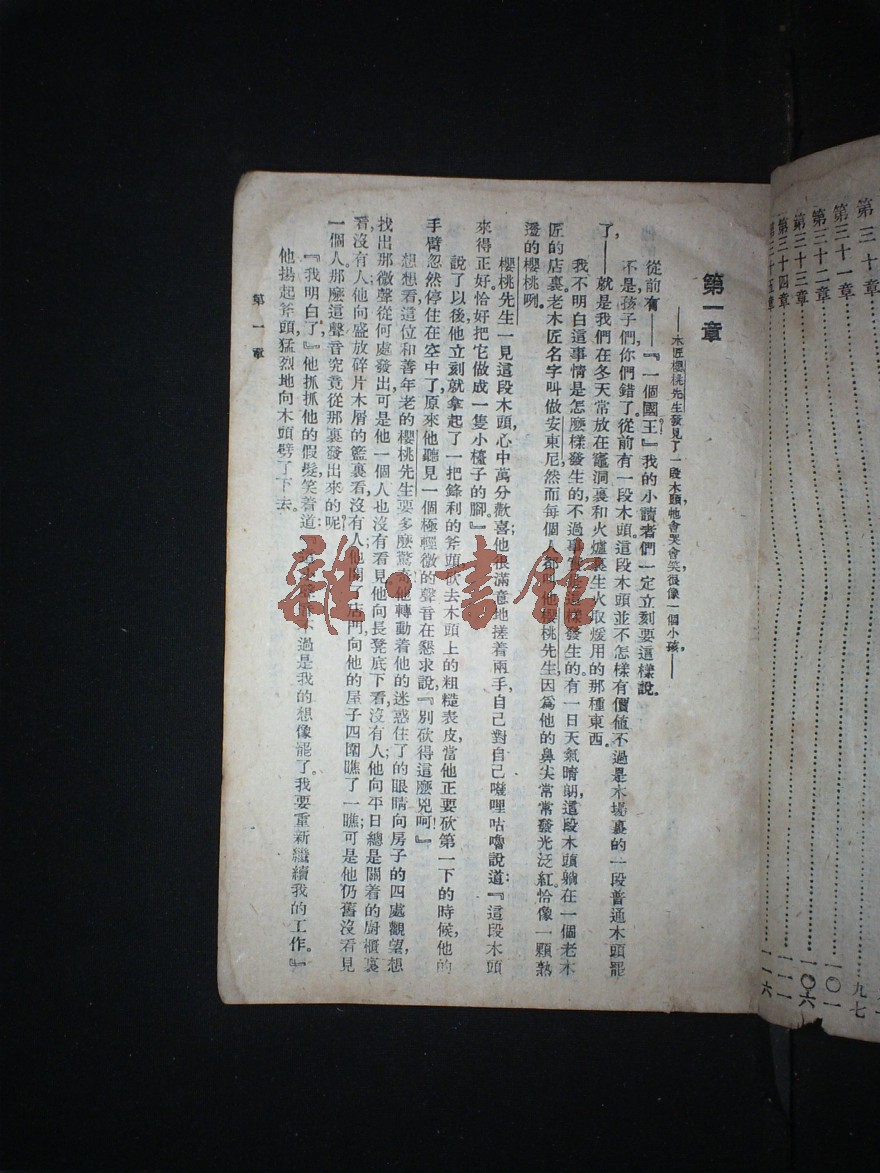 第三十章⋯⋯九七
第三十一章⋯⋯一〇一
第三十二章⋯⋯一〇六
第三十三章⋯⋯一一一
第三十四章⋯⋯一一六
第三十五章
第一章
——木匠櫻桃先生發見了一段木頭，牠會哭會笑，很像一個小孩，——
從前有——『一個國王！』我的小讀者們一定立刻要這樣說。
不是，孩子們，你們錯了。從前有一段木頭。這段木頭並不怎樣有價值，不過是木場裏的一段普通木頭罷
了，——就是我們在冬天常放在竈洞裏和火爐裏生火取煖用的那種東西。
我不明白這事情是怎麼樣發生的，不過事 是這樣發生的。有一日天氣晴朗，這段木頭躺在一個老木
匠的店裏。老木匠名字叫做安東尼，然而每個人都叫他櫻桃先生，因爲他的鼻尖常常發光泛紅，恰像一顆熟
透的櫻桃咧。
櫻桃先生一見這段木頭，心中萬分歡喜；他很滿意地搓着兩手，自己對自己嘰哩咕嚕說道：『這段木頭
來得正好。恰好把它做成一隻小檯子的腳。』
說了以後，他立刻就拿起了一把鋒利的斧頭，欲去木頭上的粗糙表皮。當他正要砍第一下的時候，他的
手臂忽然停住在空中了，原來他聽見一個極輕微的聲音在懇求說，『別砍得這麼兇呵！』
想想看，這位和善年老的櫻桃先生要多麼驚奇！他轉動着他的迷惑住了的眼睛向房子的四處觀望，想
找出那微聲從何處發出，可是他一個人也沒有看見。他向長凳底下看，沒有人；他向平日總是關着的廚櫃裏
看，沒有人；他向盛放碎片木屑的籃裏看，沒有人；他開了店門向他的屋子四圍瞧了一瞧，可是他仍舊沒看見
一個人。那麼這聲音究竟從那裏發出來的呢？
『我明白了，』他抓抓他的假髮笑着道： 過是我的想像罷了。我要重新繼續我的工作。』
他揚起斧頭，猛烈地向木頭劈了下去。
第一章
雜·書館